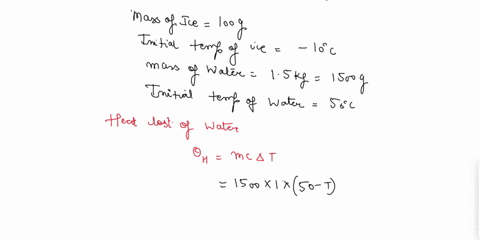 Mass of Ice = 100g
Initial temp of ice = -10°C
mass of Water = 1.5 Kg = 1500 g
Initial temp of Water = 50°C
Heat lost of Water
Q_H = mc Δ T
= 1500 × 1 × (50 - T)